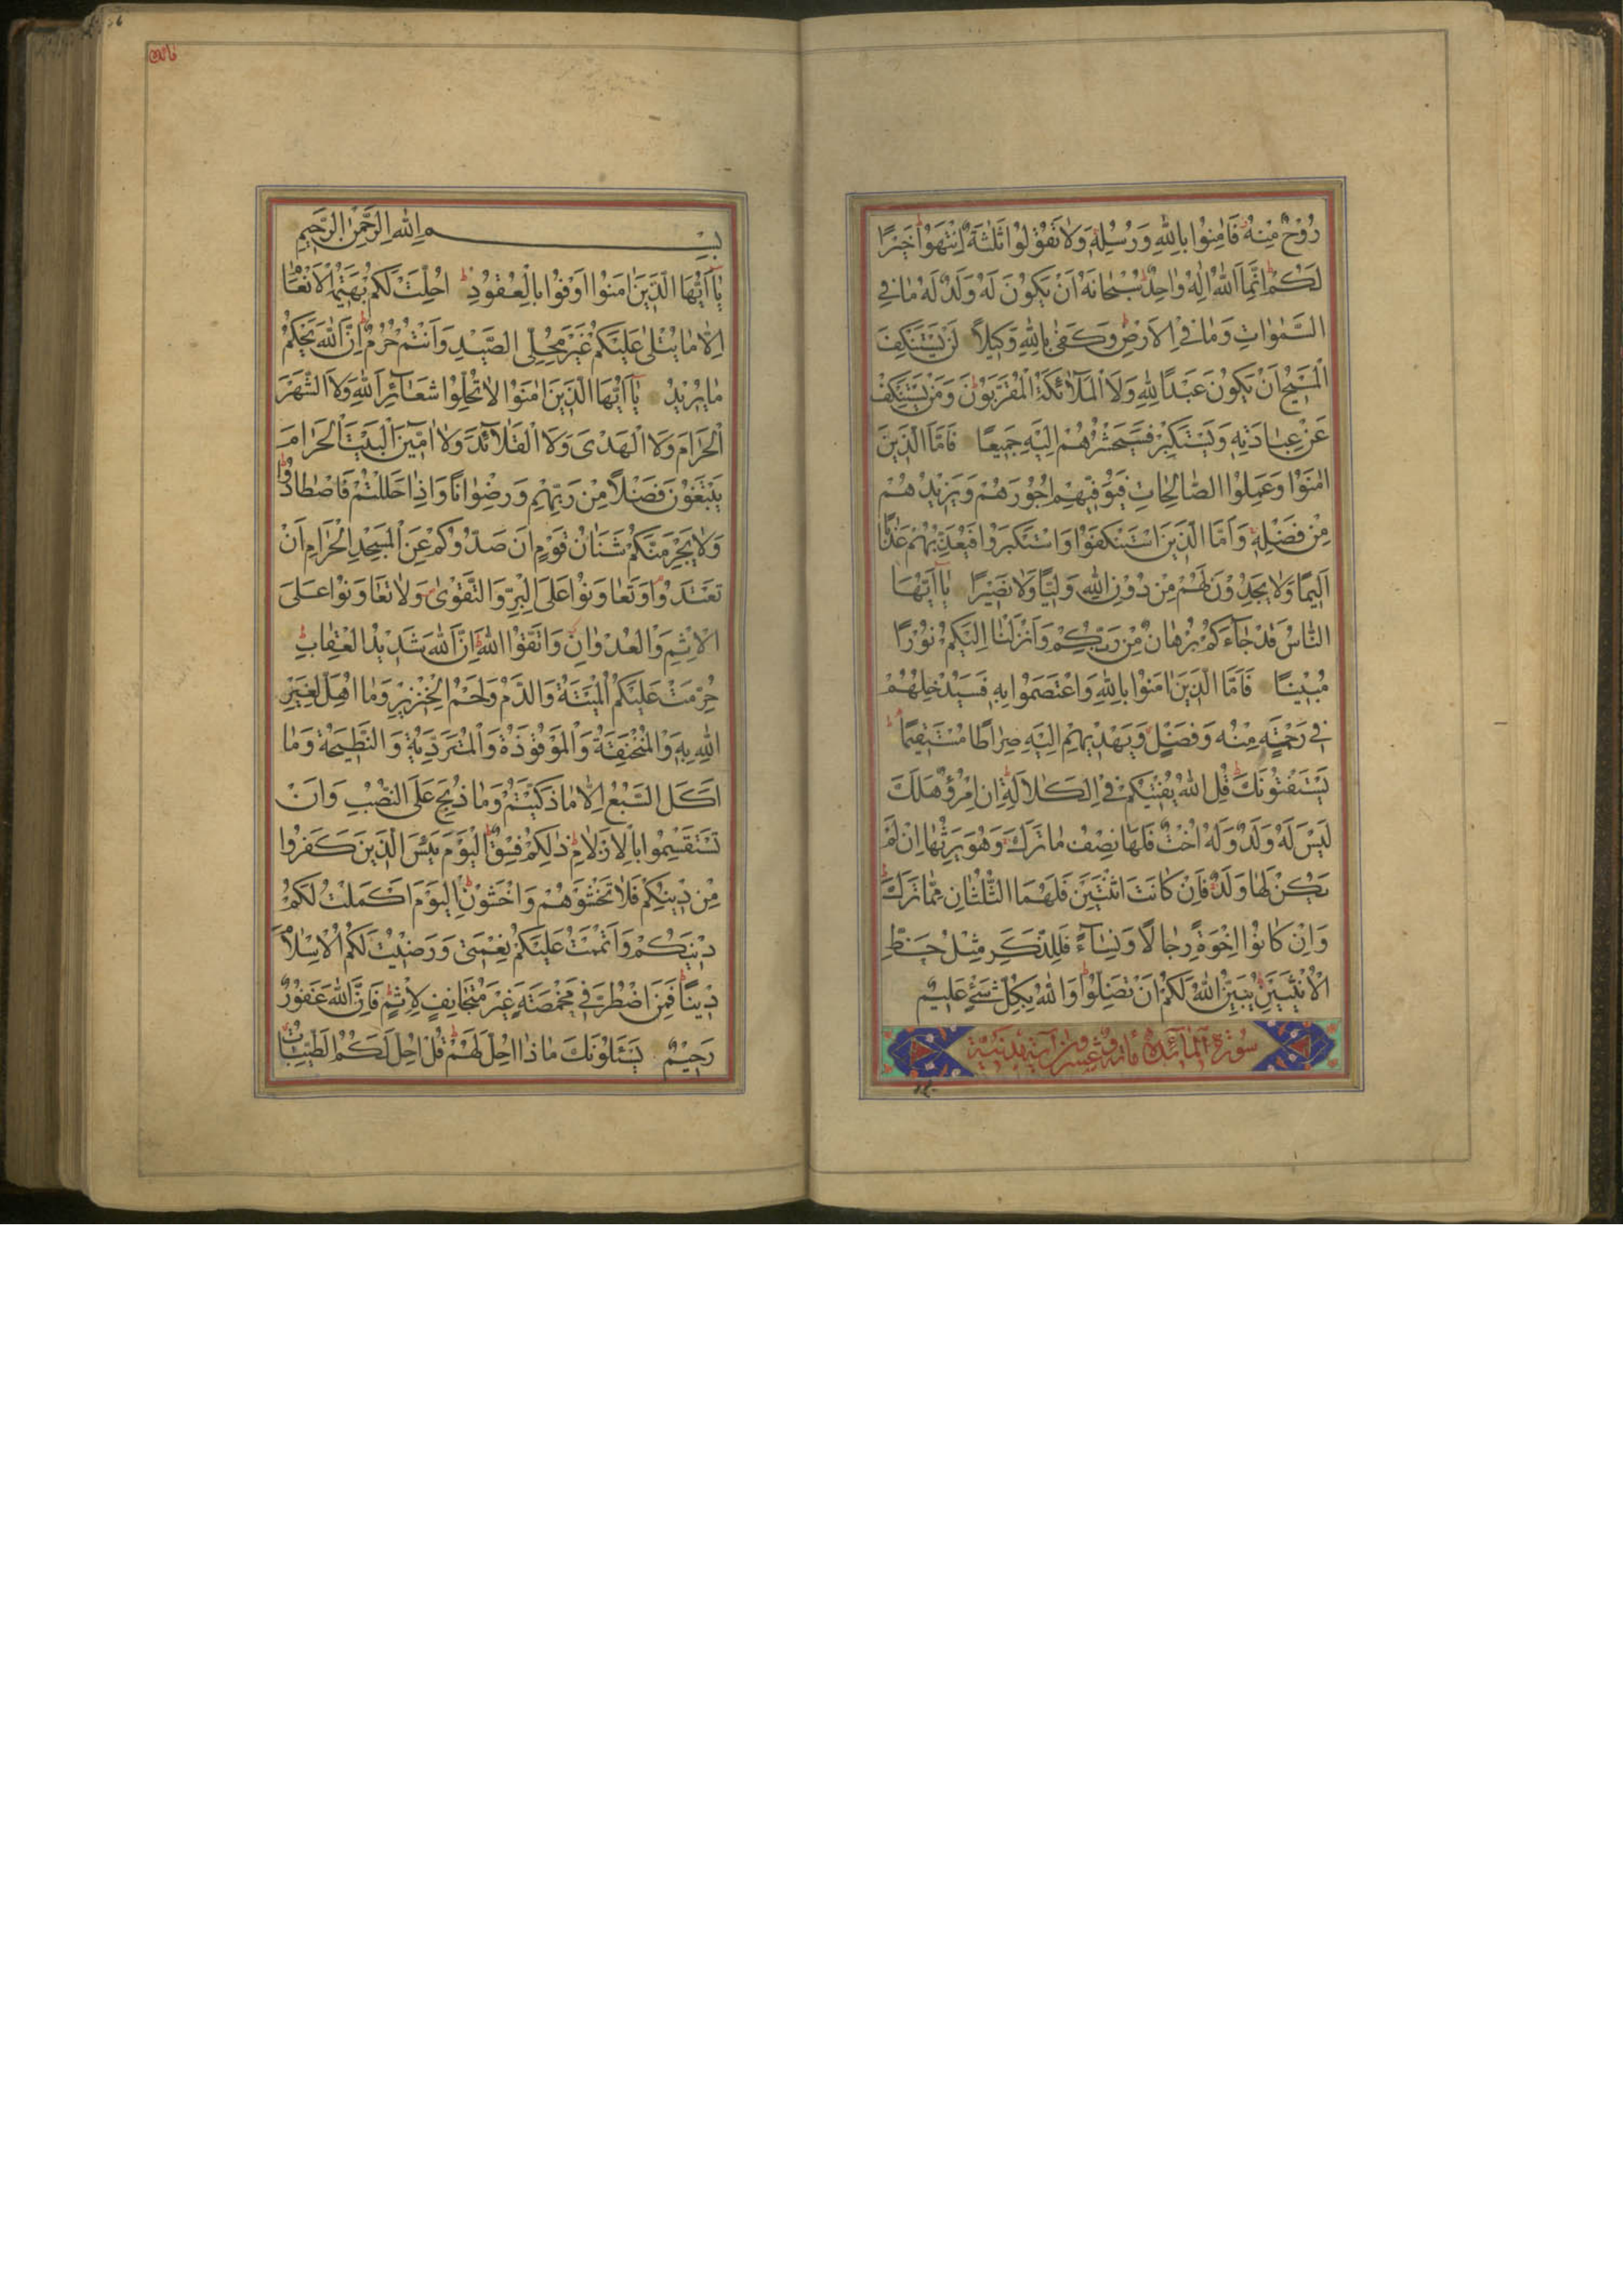 رُوحٌ مِنْهُ فَاٰمِنُوا بِاللّٰهِ وَرُسُلِهِ وَلَا تَقُولُوا ثَلٰثَةٌ اِنْتَهَوْا خَيْرًا
لَكُمْ اِنَّمَا اللّٰهُ اِلٰهٌ وَاحِدٌ سُبْحَانَهُ اَنْ يَكُونَ لَهُ وَلَدٌ لَهُ مَا فِي
السَّمٰوَاتِ وَمَا فِي الْاَرْضِ وَكَفٰى بِاللّٰهِ وَكِيلًا لَنْ يَسْتَنْكِفَ
الْمَسِيحُ اَنْ يَكُونَ عَبْدًا لِلّٰهِ وَلَا الْمَلَآئِكَةُ الْمُقَرَّبُونَ وَمَنْ يَسْتَنْكِفْ
عَنْ عِبَادَتِهِ وَيَسْتَكْبِرْ فَسَيَحْشُرُهُمْ اِلَيْهِ جَمِيعًا فَاَمَّا الَّذِينَ
اٰمَنُوا وَعَمِلُوا الصَّالِحَاتِ فَيُوَفِّيهِمْ اُجُورَهُمْ وَيَزِيدُهُمْ
مِنْ فَضْلِهِ وَاَمَّا الَّذِينَ اسْتَنْكَفُوا وَاسْتَكْبَرُوا فَيُعَذِّبُهُمْ عَذَابًا
اَلِيمًا وَلَا يَجِدُونَ لَهُمْ مِنْ دُونِ اللّٰهِ وَلِيًّا وَلَا نَصِيرًا يَآ اَيُّهَا
النَّاسُ قَدْ جَآءَكُمْ بُرْهَانٌ مِنْ رَبِّكُمْ وَاَنْزَلْنَا اِلَيْكُمْ نُورًا
مُبِينًا فَاَمَّا الَّذِينَ اٰمَنُوا بِاللّٰهِ وَاعْتَصَمُوا بِهِ فَسَيُدْخِلُهُمْ
فِي رَحْمَةٍ مِنْهُ وَفَضْلٍ وَيَهْدِيهِمْ اِلَيْهِ صِرَاطًا مُسْتَقِيمًا
يَسْتَفْتُونَكَ قُلِ اللّٰهُ يُفْتِيكُمْ فِي الْكَلَالَةِ اِنِ امْرُؤٌ هَلَكَ
لَيْسَ لَهُ وَلَدٌ وَلَهُ اُخْتٌ فَلَهَا نِصْفُ مَا تَرَكَ وَهُوَ يَرِثُهَا اِنْ لَمْ
يَكُنْ لَهَا وَلَدٌ فَاِنْ كَانَتَا اثْنَتَيْنِ فَلَهُمَا الثُّلُثَانِ مِمَّا تَرَكَ
وَاِنْ كَانُوا اِخْوَةً رِجَالًا وَنِسَآءً فَلِلذَّكَرِ مِثْلُ حَظِّ
الْاُنْثَيَيْنِ يُبَيِّنُ اللّٰهُ لَكُمْ اَنْ تَضِلُّوا وَاللّٰهُ بِكُلِّ شَيْءٍ عَلِيمٌ
سُورَةُ الْمَآئِدَةِ مائة وعشرون آية مدنية
بِسْمِ اللّٰهِ الرَّحْمٰنِ الرَّحِيمِ
يَآ اَيُّهَا الَّذِينَ اٰمَنُوا اَوْفُوا بِالْعُقُودِ اُحِلَّتْ لَكُمْ بَهِيمَةُ الْاَنْعَامِ
اِلَّا مَا يُتْلٰى عَلَيْكُمْ غَيْرَ مُحِلِّي الصَّيْدِ وَاَنْتُمْ حُرُمٌ اِنَّ اللّٰهَ يَحْكُمُ
مَا يُرِيدُ يَآ اَيُّهَا الَّذِينَ اٰمَنُوا لَا تُحِلُّوا شَعَآئِرَ اللّٰهِ وَلَا الشَّهْرَ
الْحَرَامَ وَلَا الْهَدْيَ وَلَا الْقَلَآئِدَ وَلَا اٰمِّينَ الْبَيْتَ الْحَرَامَ
يَبْتَغُونَ فَضْلًا مِنْ رَبِّهِمْ وَرِضْوَانًا وَاِذَا حَلَلْتُمْ فَاصْطَادُوا
وَلَا يَجْرِمَنَّكُمْ شَنَاٰنُ قَوْمٍ اَنْ صَدُّوكُمْ عَنِ الْمَسْجِدِ الْحَرَامِ اَنْ
تَعْتَدُوا وَتَعَاوَنُوا عَلَى الْبِرِّ وَالتَّقْوٰى وَلَا تَعَاوَنُوا عَلَى
الْاِثْمِ وَالْعُدْوَانِ وَاتَّقُوا اللّٰهَ اِنَّ اللّٰهَ شَدِيدُ الْعِقَابِ
حُرِّمَتْ عَلَيْكُمُ الْمَيْتَةُ وَالدَّمُ وَلَحْمُ الْخِنْزِيرِ وَمَا اُهِلَّ لِغَيْرِ
اللّٰهِ بِهِ وَالْمُنْخَنِقَةُ وَالْمَوْقُوذَةُ وَالْمُتَرَدِّيَةُ وَالنَّطِيحَةُ وَمَا
اَكَلَ السَّبُعُ اِلَّا مَا ذَكَّيْتُمْ وَمَا ذُبِحَ عَلَى النُّصُبِ وَاَنْ
تَسْتَقْسِمُوا بِالْاَزْلَامِ ذٰلِكُمْ فِسْقٌ اَلْيَوْمَ يَئِسَ الَّذِينَ كَفَرُوا
مِنْ دِينِكُمْ فَلَا تَخْشَوْهُمْ وَاخْشَوْنِ اَلْيَوْمَ اَكْمَلْتُ لَكُمْ
دِينَكُمْ وَاَتْمَمْتُ عَلَيْكُمْ نِعْمَتِي وَرَضِيتُ لَكُمُ الْاِسْلَامَ
دِينًا فَمَنِ اضْطُرَّ فِي مَخْمَصَةٍ غَيْرَ مُتَجَانِفٍ لِاِثْمٍ فَاِنَّ اللّٰهَ غَفُورٌ
رَحِيمٌ يَسْئَلُونَكَ مَاذَا اُحِلَّ لَهُمْ قُلْ اُحِلَّ لَكُمُ الطَّيِّبَاتُ